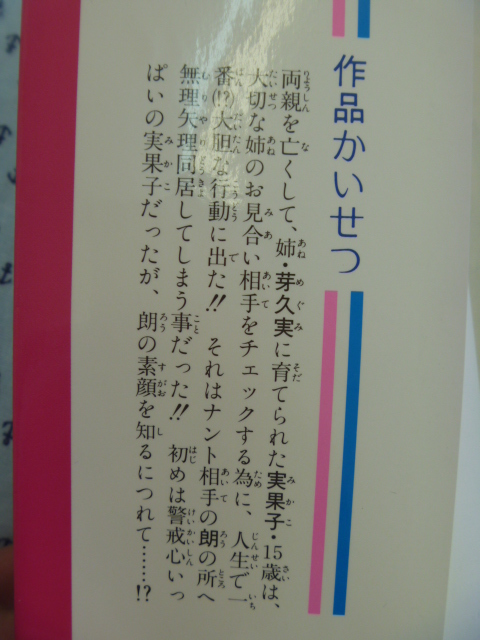 作品かいせつ
両親を亡くして、姉・芽久実に育てられた実果子・15歳は、
大切な姉のお見合い相手をチェックする為に、人生で一
番(!?)大胆な行動に出た!! それはナント相手の朗の所へ
無理矢理同居してしまう事だった!! 初めは警戒心いっ
ぱいの実果子だったが、朗の素顔を知るにつれて……!?